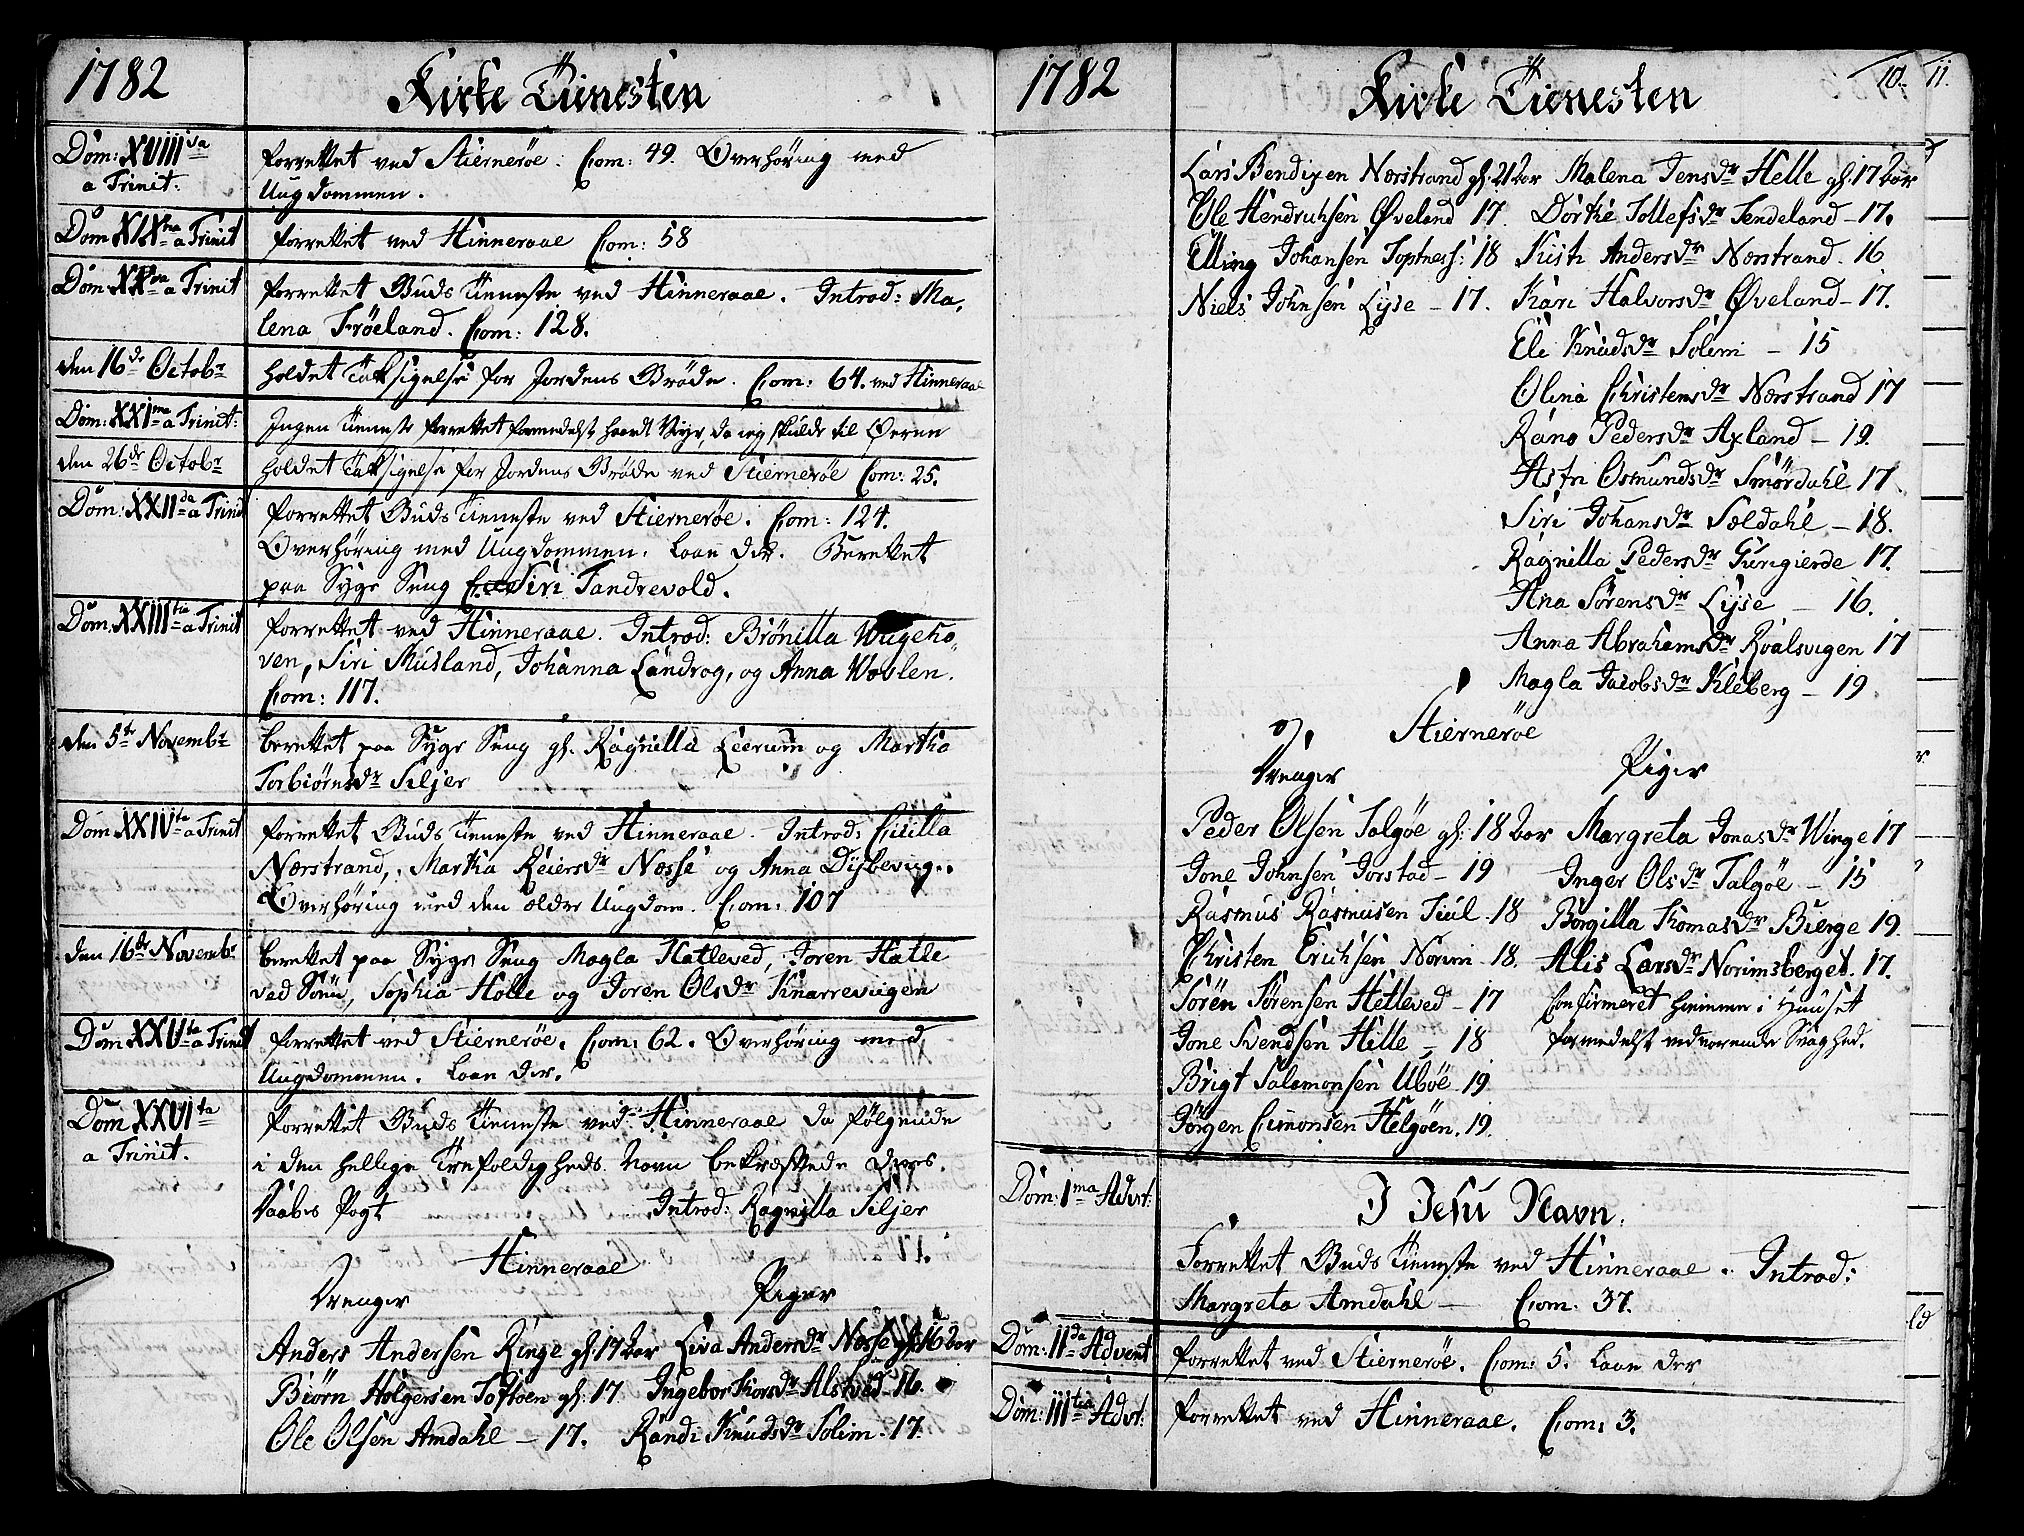 1782
Kirke Tienesten
Dom: XVIII va
a Trinit:
forrettet ved Stiernerøe. Com: 49. Overhøring med
Ungdommen.
Dom XIX na a Trinit
forrettet ved Hinneraae Com: 58
Dom XX ma a Trinit
forrettet Guds Tieneste ved Hinneraae. Introd: Ma,
lena Frøeland. Com: 128.
den 16 de Octobr
holdet Taksigelse for Jordens Grøde. Com: 64. ved Hinneraae
Dom: XXI ma a Trinit:
Ingen Tieneste forrettet formedelst haardt Veyr, da ieg skulde til Øeren
den 26 de Octobr
holdet Taksigelse for Jordens Grøde ved Stiernerøe Com: 25.
Dom: XXII da a Trinit
forrettet Guds Tieneste ved Stiernerøe. Com: 124.
Overhøring med Ungdommen. Laae der. Berettet
paa Syge Seng Siri Tandrevold.
Dom. XXIII tia a Trinit
forrettet ved Hinneraae. Introd: Brønilla Wigeho,,
ven, Siri Musland, Johanna Landrog, og Anna Wovlen.
Com: 117.
den 5 te Novembr
berettet paa Syge Seng gl. Ragnilla Leerum og Martha
Torbiørnsdr Siljer
Dom XXIV ta a Trinit
forrettet Guds Tieneste ved Hinneraae. Introd: Cicilla
Nærstrand, Martha Reiersdr Næsse og Anna Dysbevug..
Overhøring med den ældre Ungdom. Com: 107
den 16 de Novembr
berettet paa Syge Seng Magla Hatleved, Joren Hatle
ved Sønn, Sophia Holle og Joren Olsdr Knarrevugen
Dom XXV ta a Trinit
forrettet ved Stiernerøe. Com: 62. Overhøring med
Ungdommen. Laae der.
Dom XXVI ta
a Trinit.
forrettet Guds Tieneste ved Hinneraae da følgende
i den hellige Trefoldigheds Navn bekræftede deres
Daabes Pagt Introd: Ragnilla Siljer
Hinneraae
Drenger Piger
Anders Andersen Ringe gl. 17 Aar Liva Andersdr Næsse gl: 16 Aar
Biørn Holgersen Toftøen gl. 17 Ingebor Thorsdr Alsteed 16.
Ole Olsen Amdahl – 17. Randi Knudsdr Solim. 17.
1782
Kirke Tienesten
10. 11.
Lars Bendixen Nærstrand gl. 21 Aar Malena Jensdr Helle gl. 17 Aar
Ole Hendrichsen Øveland 17. Dorthe Tollefsdr Tendeland – 17.
Elling Johansen Toptness: 18 Kisti Andersdr Nærstrand. 16
Niels Johnsen Lyse – 17. Kari Halvorsdr Øveland – 17.
Eli Knudsdr Solem – 15
Olena Christensdr Nærstrand 17
Rano Pedersdr Axland – 19.
Astri Osmundsdr Smørdahl 17
Siri Johansdr Sældahl – 18.
Ragnilla Pedersdr Turigierde 17.
Ana Sørensdr Lyse – 16.
Anna Abrahamsdr Roalsvigen 17
Magla Jacobsdr Kleberg – 19
Stiernerøe
Drenger Piger
Peder Olsen Talgøe gl: 18 Aar Margreta Jonasdr Winge 17
Jone Johnsen Jorstad – 19 Inger Olsdr Talgøe – 15
Rasmus Rasmusen Tiul. 18 Borgilla Thomasdr Bierge 19.
Christen Erichsen Norim – 18. Alis Larsdr Norimsberget. 17.
Sören Sørensen Hetleved – 17 Confirmeret hiemme i Huuset
Jone Svendsen Hille – 18 formedelst vedvarende Svaghed.
Brigt Salamonsen Ubøe 19
Jørgen Cimonsen Helgøen. 19.
Dom: I ma Advt:
I Jesu Navn.
Forrettet Guds Tieneste ved Hinneraae. Introd:
Margreta Amdahl – Com. 37.
Dom: II da Advent
forrettet ved Stiernerøe. Com: 5. Laae der
Dom: III tia Advt:
forrettet ved Hinneraae. Com: 3.